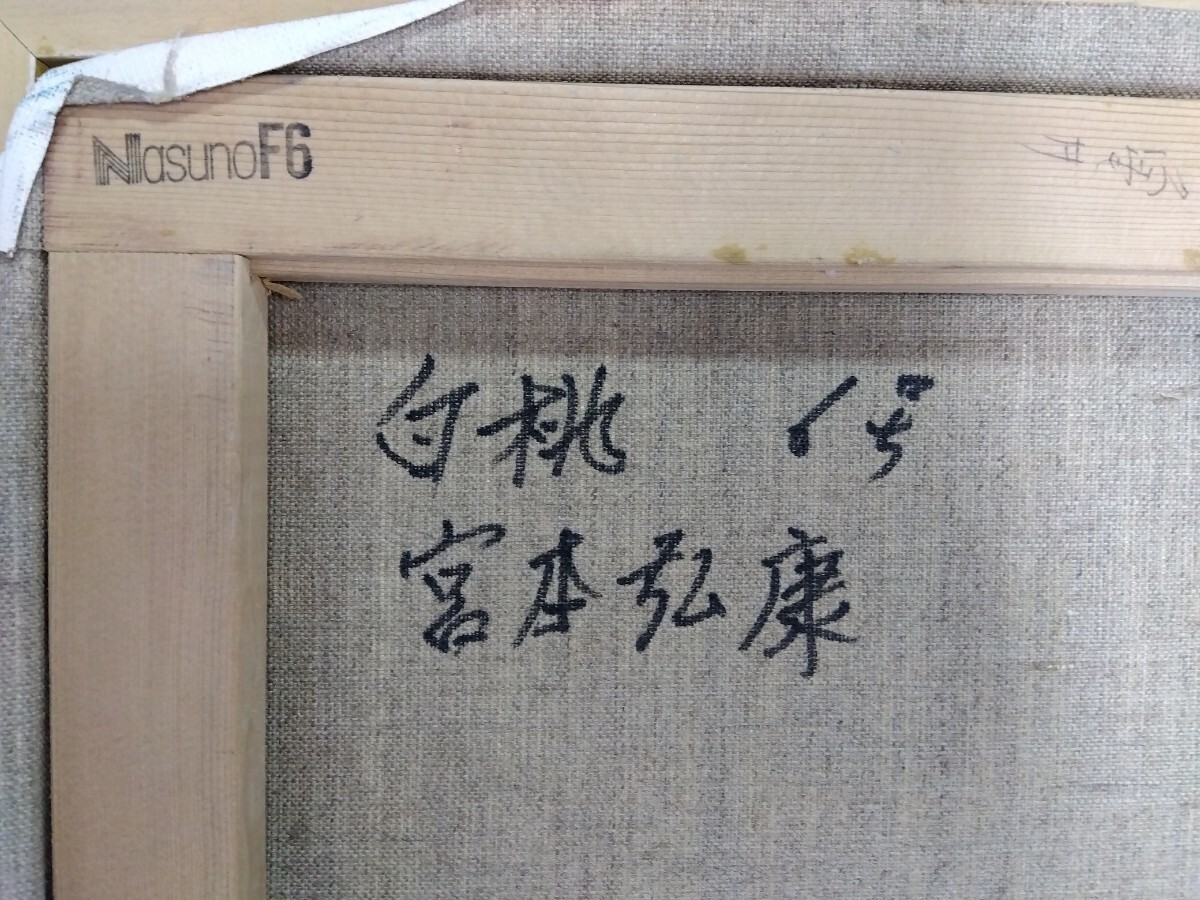 NasunoF6
白桃 6号
宮本弘康